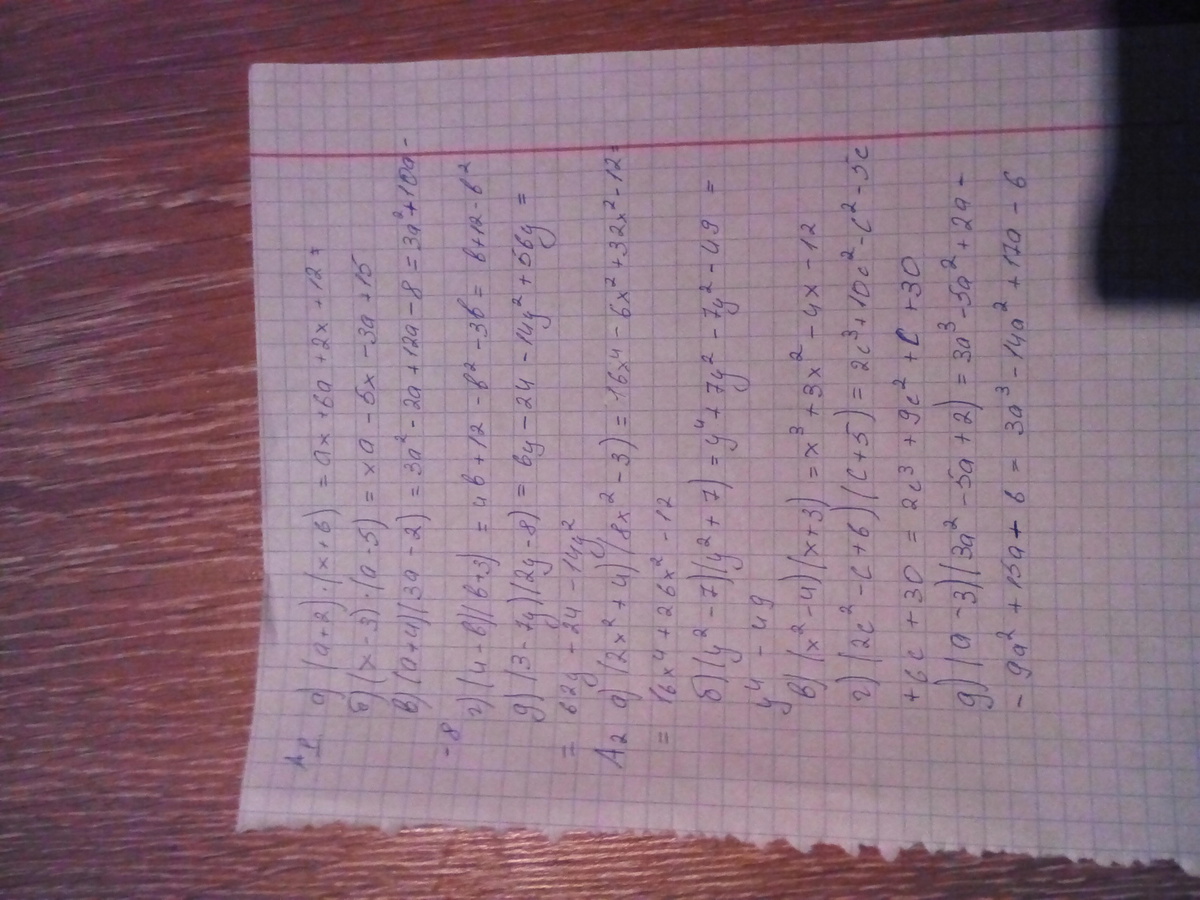 А1 а) (a+2)·(x+6) = ax + 6a + 2x + 12 =
б) (x-3)·(a-5) = xa - 5x - 3a + 15
в) (a+4)(3a-2) = 3a² - 2a + 12a - 8 = 3a² + 10a -
- 8
г) (4-b)(b+3) = 4b + 12 - b² - 3b = b + 12 - b²
д) (3-7y)(2y-8) = 6y - 24 - 14y² + 56y =
= 62y - 24 - 14y²
А2 а) (2x²+4)(8x²-3) = 16x⁴ - 6x² + 32x² - 12 =
= 16x⁴ + 26x² - 12
б) (y²-7)(y²+7) = y⁴ + 7y² - 7y² - 49 =
y⁴ - 49
в) (x²-4)(x+3) = x³ + 3x² - 4x - 12
г) (2c²-c+6)(c+5) = 2c³ + 10c² - c² - 5c
+ 6c + 30 = 2c³ + 9c² + c + 30
д) (a-3)(3a²-5a+2) = 3a³ - 5a² + 2a -
- 9a² + 15a + 6 = 3a³ - 14a² + 17a - 6